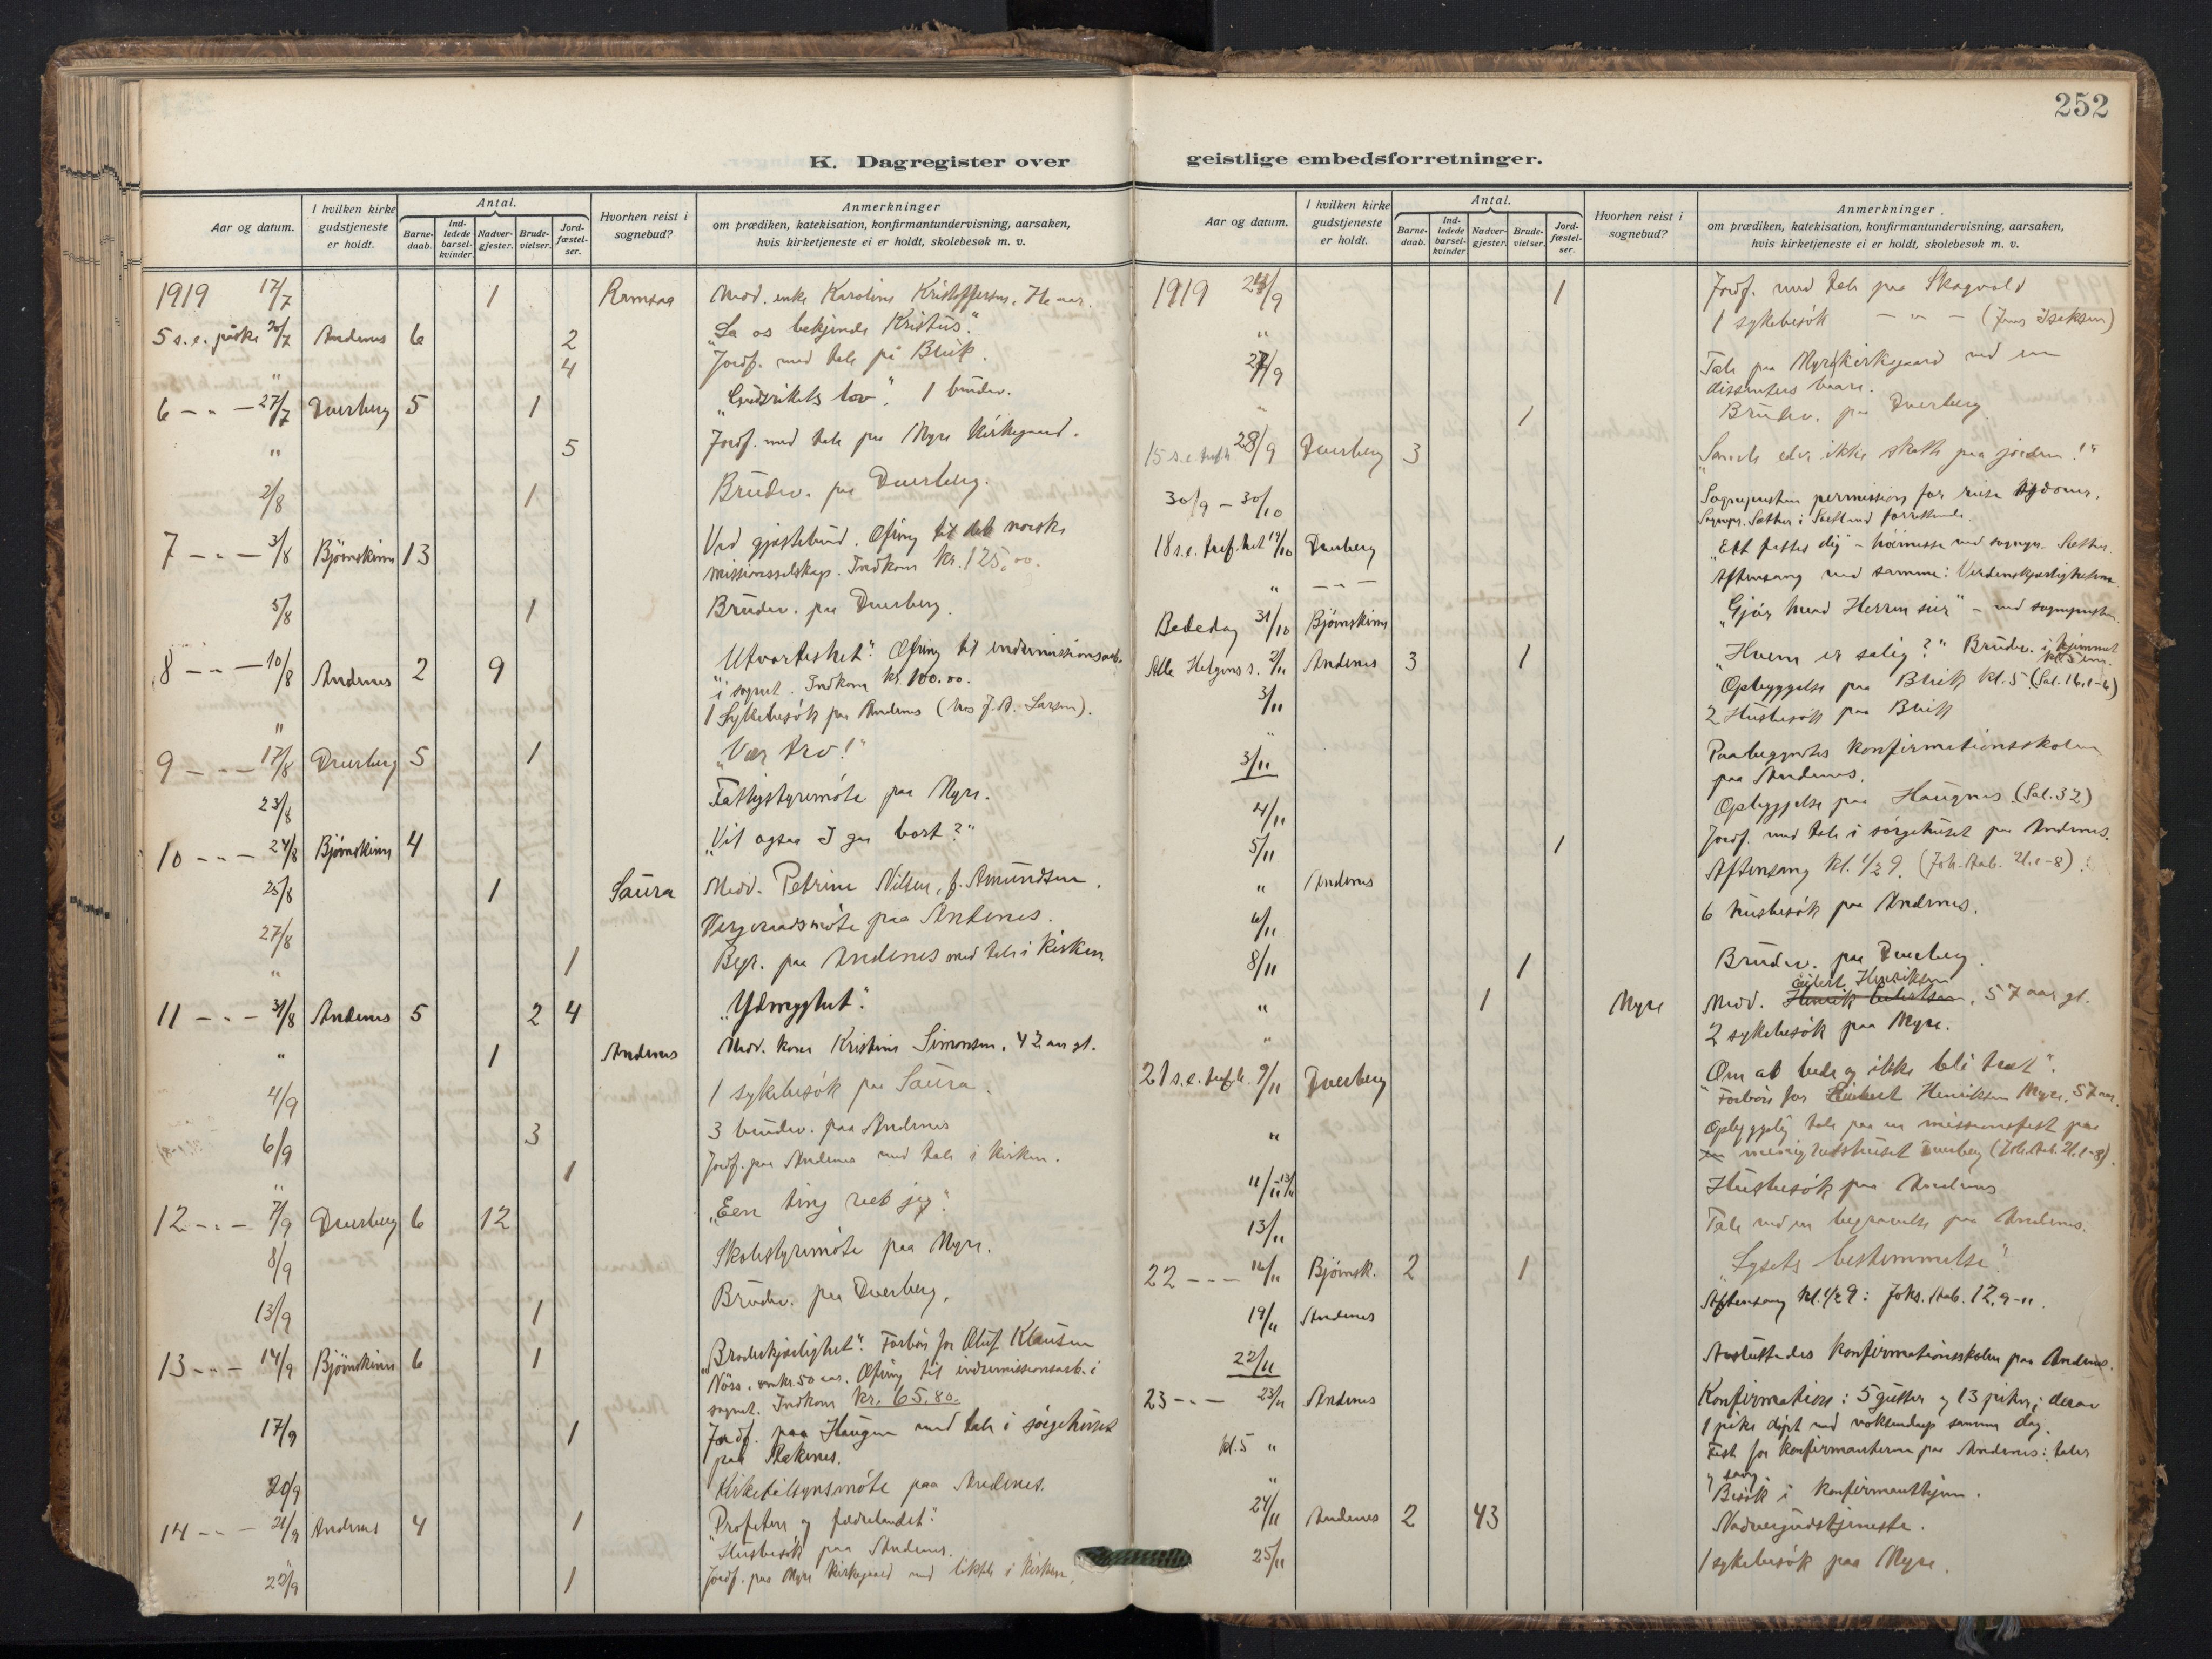 252
K. Dagregister over geistlige embedsforretninger.
Aar og datum.
I hvilken kirke gudstjeneste er holdt.
Antal.
Barne-daab.
Ind-ledede barsel-kvinder.
Nadver-gjester.
Brude-vielser.
Jord-fæstel-ser.
Hvorhen reist i sognebud?
Anmerkninger
om prædiken, katekisation, konfirmantundervisning, aarsaken,
hvis kirketjeneste ei er holdt, skolebesøk m. v.
1919 17/7 1 Ramsaa Medd. enke Karoline Kristoffersen,
5 s. e. påske 20/7 Andenes 6 2 "La os bekjende Kristus".
" 4 Jordf. med tale på Bleik.
6 - " - 27/7 Dverberg 5 1 "Gudsrikets lov". 1 brudev.
" 5 Jordf. med tale paa Myre kirkegaard.
2/8 1 Brudev. paa Dverberg.
7 - " - 3/8 Bjørnskinn 13 Ved gjæstebud. Ofring til det norske
missionsselskap. Indkom kr. 125,00.
5/8 1 Brudev. paa Dverberg.
8 - " - 10/8 Andenes 2 9 Ofring til indremissionsarb.
i sognet. Indkom kr. 100.00.
" 1 Sykebesøk paa Andenes (hos J. A. Larsen).
9 - " - 17/8 Dverberg 5 1 "Vær tro!"
23/8 Fattigstyremøte paa Myre.
10 - " - 24/8 Bjørnskinn 4 "Vil ogsaa I gaa bort?"
25/8 1 Saura Medd. Petrine Nilsen, f. Amundsen.
27/8 Vergeraadsmøte paa Andenes.
" 1 Begr. paa Andenes med tale i kirken
11 - " - 31/8 Andenes 5 2 4 "Ydmyghet".
" 1 Andenes Medd. kone Kristine Simonsen, 42 aar gl.
4/9 1 sykebesøk paa Saura.
6/9 3 3 brudev. paa Andenes
" 1 Jordf. paa Andenes med tale i kirken.
12 - " - 7/9 Dverberg 6 12 "Een ting vet jeg".
8/9 Skolestyremøte paa Myre.
13/9 1 Brudev. paa Dverberg.
13 - " - 14/9 Bjørnskinn 6 1 "Broderkjærlighet". Forbøn for Oluf Klausen
Nøss, omkr. 50 aar. Ofring til indremissionsarb. i
sognet. Indkom kr. 65.80.
17/9 1 Jordf. paa Haugnes med tale i sørgehuset
paa
20/9 Kirketilsynsmøte paa Andenes.
14 - " - 21/9 Andenes 4 1 "Profeten og fædrelandet".
Husbesøk paa Andenes.
1 Jordf. paa Myre kirkegaard med tale i kirken.
Aar og datum.
I hvilken kirke gudstjeneste er holdt.
Antal.
Barne-daab.
Ind-ledede barsel-kvinder.
Nadver-gjester.
Brude-vielser.
Jord-fæstel-ser.
Hvorhen reist i sognebud?
Anmerkninger
om prædiken, katekisation, konfirmantundervisning, aarsaken,
hvis kirketjeneste ei er holdt, skolebesøk m. v.
1919 1 Jordf. med tale paa Skogvold
" 1 sykebesøk - " - (Jens Iseksen)
27/9 Tale paa Myre kirkegaard ved en
dissenters baare.
" 1 Brudev. paa Dverberg
15 s. e. trefh. 28/9 Dverberg 3 "Samle eder ikke skatte paa jorden!"
30/9 - 30/10 Sognepresten permission for reise sydover.
Sognepr. Sæther i Sortland forrettende.
18 s. e. tref.het 19/10 Dverberg "Ett fattes dig" - høimesse ved sognepr. Sæther.
" - " - Aftensang ved samme: Verdenskjærligheten
Bededag 31/10 Bjørnskinn "Gjør hvad Herren sier" - ved sogneprest
Alle Helgens s. 2/11 Andenes 3 1 "Hvem er salig?" Brudev. i hjemmet
kl. 5 em.
3/11 Opbyggelse paa Bleik kl. 5 (Sal. 16,1-6)
" 2 Husbesøk paa Bleik
3/11 Paabegyntes konfirmationsskolen
paa Andenes.
4/11 Opbyggelse paa Haugnes (Sal. 32)
5/11 1 Jordf. med tale i sørgehuset paa Andenes.
" Andenes Aftensang kl. 1/2 9. (Joh. Aab. 21,1-8).
6/11 6 husbesøk paa Andenes.
8/11 1 Brudev. paa Dverberg.
Eilert Henriksen
" 1 Myre Medd. Henrik Eilertsen, 57 aar gl.
" 2 sykebesøk paa Myre.
21 s. e. trefh. 9/11 Dverberg Om at bede og ikke bli træt".
Forbøn for Eilert Henriksen Myre, 57 aar.
" Opbyggelig tale paa en missionsfest paa
menighetshuset Dverberg (Joh. Aab. 21,1-8).
11/11-13/11 Husbesøk paa Andenes
13/11 Tale ved en begravelse paa Andenes.
22 - " - 16/11 Bjørnsk. 2 1 "Lysets bestemmelse".
19/11 Andenes Aftensang kl. 1/2 9: Johs. Aab. 12,9-11.
22/11 Avsluttedes konfirmationsskolen paa Andenes.
23 - " - 23/11 Andenes Konfirmation: 5 gutter og 13 piker; derav
1 pike døpt ved voksendaap samme dag.
kl. 5 " Fest for konfirmanterne paa Andenes: taler
og sang.
" Besøk i konfirmanthjem.
24/11 Andenes 2 43 Nadvergudstjeneste.
25/11 1 sykebesøk paa Myre.